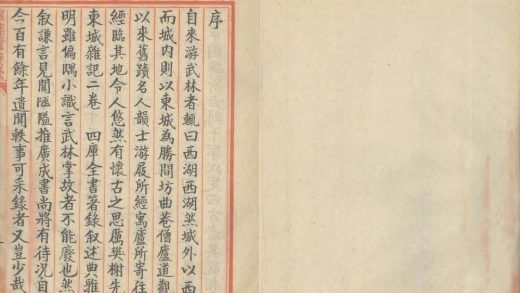 序
自來游武林者輒曰西湖西湖然城外以西
而城内則以東城為勝間坊曲巷僧廬道觀
以來舊蹟名人韻士游屐所經寓廬所寄往
經臨其地令人悠然有懷古之思厲樊榭先
東城雜記二卷 四庫全書箸錄叙述典雅
明雖偏隅小識言武林掌故者不能廢也然
叙謙言見聞陋隘推廣成書尚將有待況自
今百有餘年遺聞軼事可采錄者又豈少哉